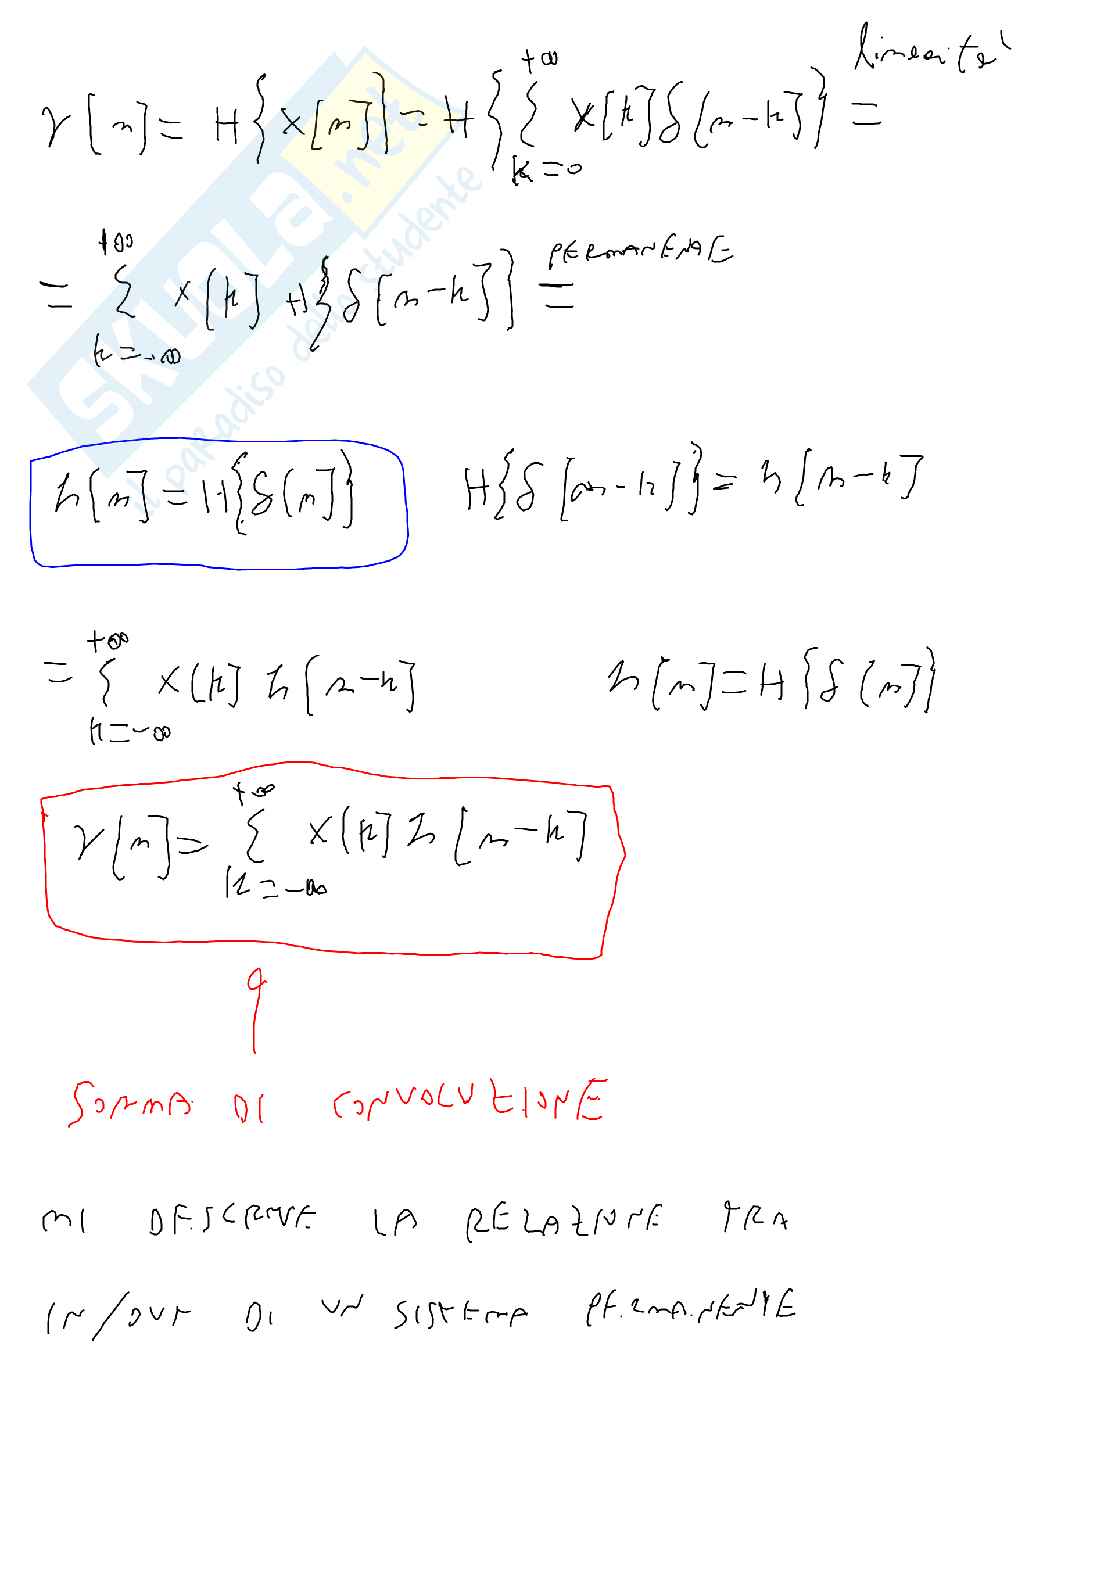 linearità
y[n] = H{x[n]} = H{ Σ_{k=0}^{+∞} x[k] δ[n-k] } =
= Σ_{k=-∞}^{+∞} x[k] H{δ[n-k]} = PERMANENZE
h[n] = H{δ[n]} H{δ[n-k]} = h[n-k]
= Σ_{k=-∞}^{+∞} x[k] h[n-k] h[n] = H{δ[n]}
y[n] = Σ_{k=-∞}^{+∞} x[k] h[n-k]
SOMMA DI CONVOLUZIONE
MI DESCRIVE LA RELAZIONE TRA
IN/OUT DI UN SISTEMA PERMANENTE
SKUOLA.net
il paradiso dello studente